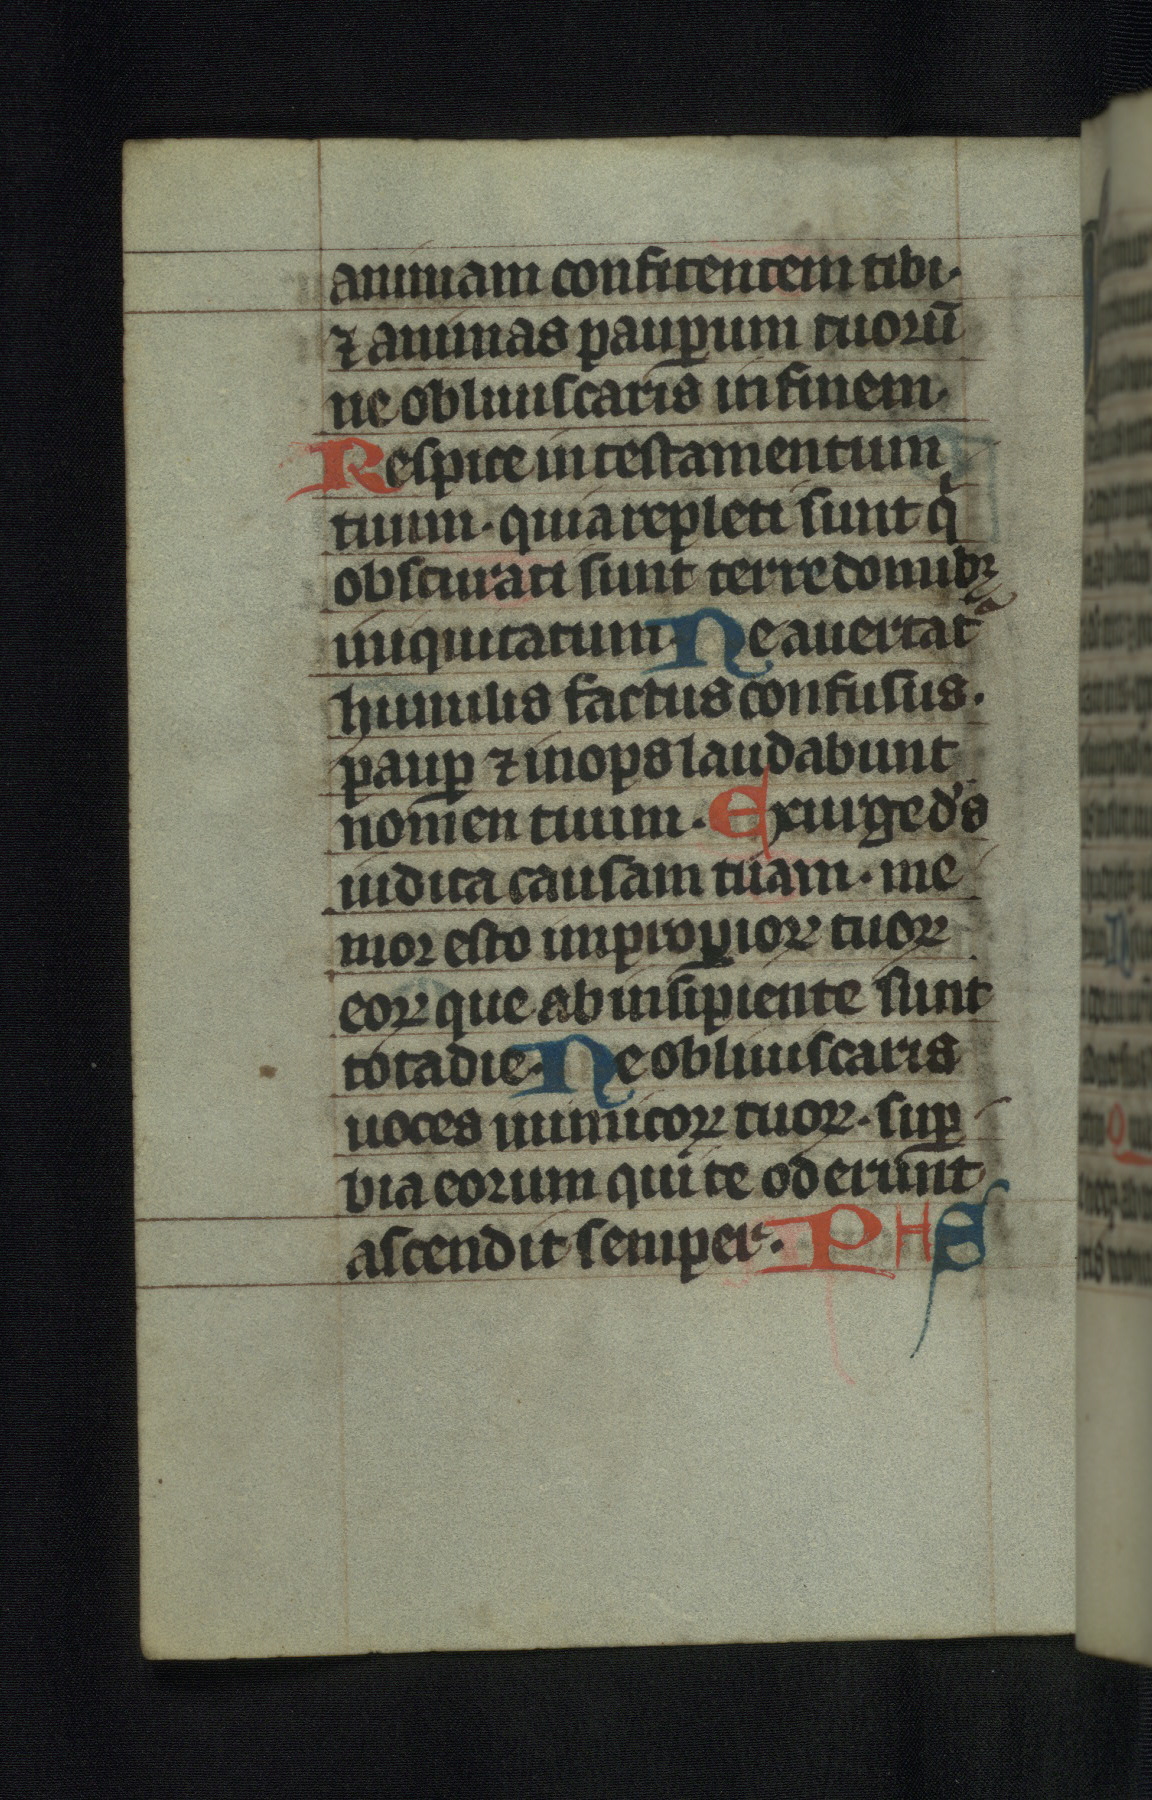 animam confitentem tibi·
⁊ animas paup̱um tuorū
ne obliuiscaris in finem·
Respice in testamentum
tuum· quia repleti sunt q̄
obscurati sunt terre domibꝫ
iniquitatum· Ne auertat᷑
humilis factus confusus·
paup̱ ⁊ inops laudabunt
nomen tuum· Exurge d's
iudica causam tuam· me
mor esto improp̱ioꝝ tuoꝝ
eoꝝ que ab insipiente sunt
tota die· Ne obliuiscaris
uoces inimicoꝝ tuoꝝ· sup̱
bia eorum qui te oderunt
ascendit semper· PHS